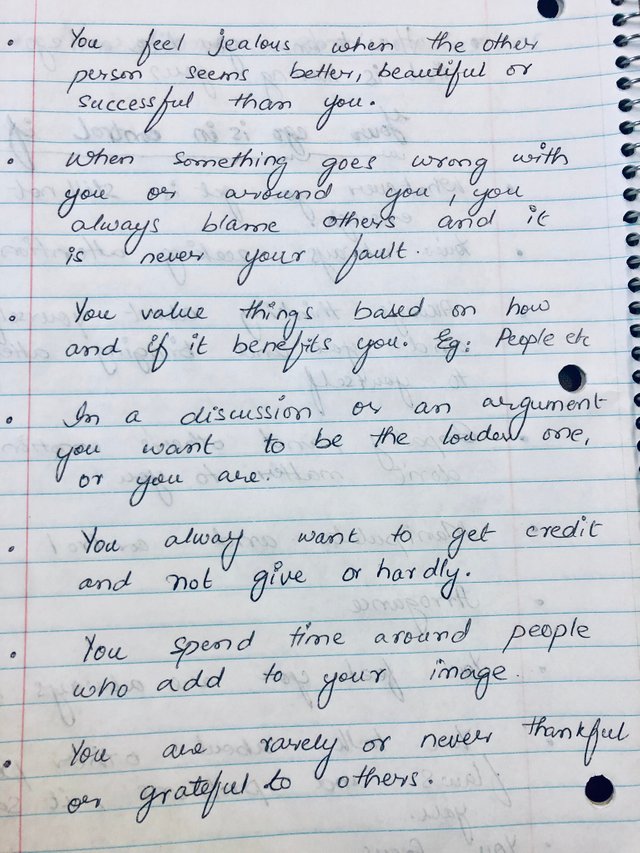 • You feel jealous when the other
person seems better, beautiful or
successful than you.
• When something goes wrong with
you or around you, you
always blame others and it
is never your fault.
• You value things based on how
and if it benefits you. Eg: People etc
• In a discussion or an argument
you want to be the louder one,
or you are.
• You always want to get credit
and not give or hardly.
• You spend time around people
who add to your image.
• You are rarely or never thankful
or grateful to others.